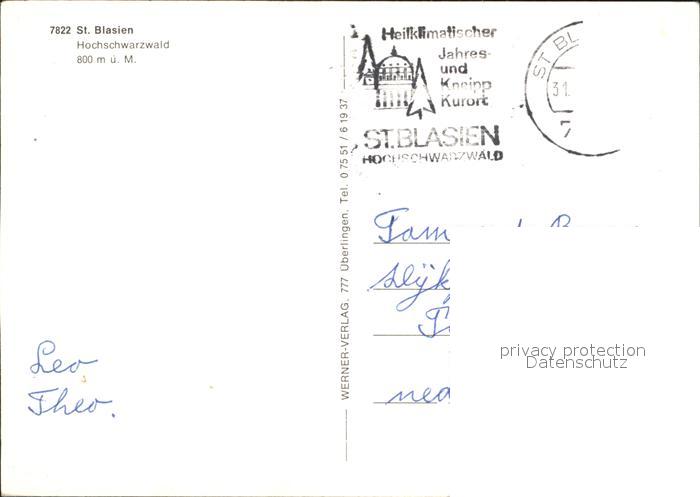 7822 St. Blasien
Hochschwarzwald
800 m ü. M.
Heilklimatischer
Jahres-
und
Kneipp
Kurort
ST. BLASIEN
HOCHSCHWARZWALD
ST BL
31.
7
WERNER-VERLAG. 777 Überlingen. Tel. 0 75 51 / 6 19 37
Fam
privacy protection
Datenschutz
Leo
Theo.